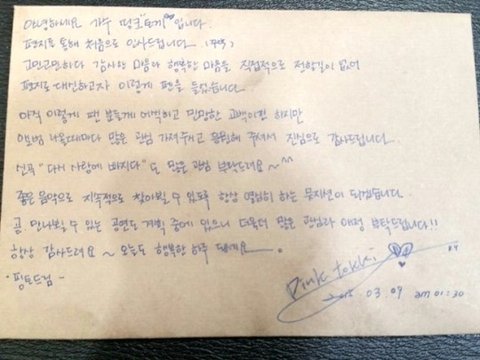 안녕하세요 가수 핑크토끼♡입니다.
편지로 통해 처음으로 인사드립니다.
고민고민하다 감사한 마음과 행복한 마음을 직접적으로 전할길이 없어
편지로 대신하고자 이렇게 펜을 들었습니다.
아직 이렇게 팬분들께 어색하고 민망한 고백이긴 하지만
앨범 나올때마다 많은 관심 가져주시고 응원해 주셔서 진심으로 감사드립니다.
신곡 "다시 사랑에 빠지다"도 많은 관심 부탁드려요~^^
좋은 음악으로 지속적으로 찾아뵐 수 있도록 항상 열심히 하는 뮤지션이 되겠습니다.
곧 만나뵐 수 있는 공연도 계획 중에 있으니 더욱더 많은 관심과 애정 부탁드립니다!!
항상 감사드려요~ 오늘도 행복한 하루 되세요~.
·핑토드림-
Pink tokki
2015 03. 09 am 01:30